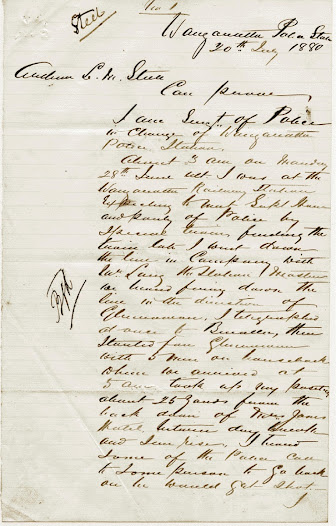 No 1
Steele
Wangaratta Police Station
20th July 1880
Arthur L. M. Steele
Can prove,
I am Sergt of Police
in Charge of Wangaratta
Police Station.
About 3 am on Monday
28th June ult I was at the
Wangaratta Railway Station
Expecting to meet Supt Hare
and party of Police by
Special train, finding the
train late I went down
the line in Company with
Mr Lang the Station Master
we heard firing down the
line in the direction of
Glenrowan. I telegraphed
at once to Benalla, then
Started for Glenrowan
with 5 men on horseback
where we arrived at
5 am took up my position
about 25 yards from the
back door of Mrs Jones
Hotel between day break
and Sun rise. I heard
some of the Police call
to some person to go back
or he would get Shot
I